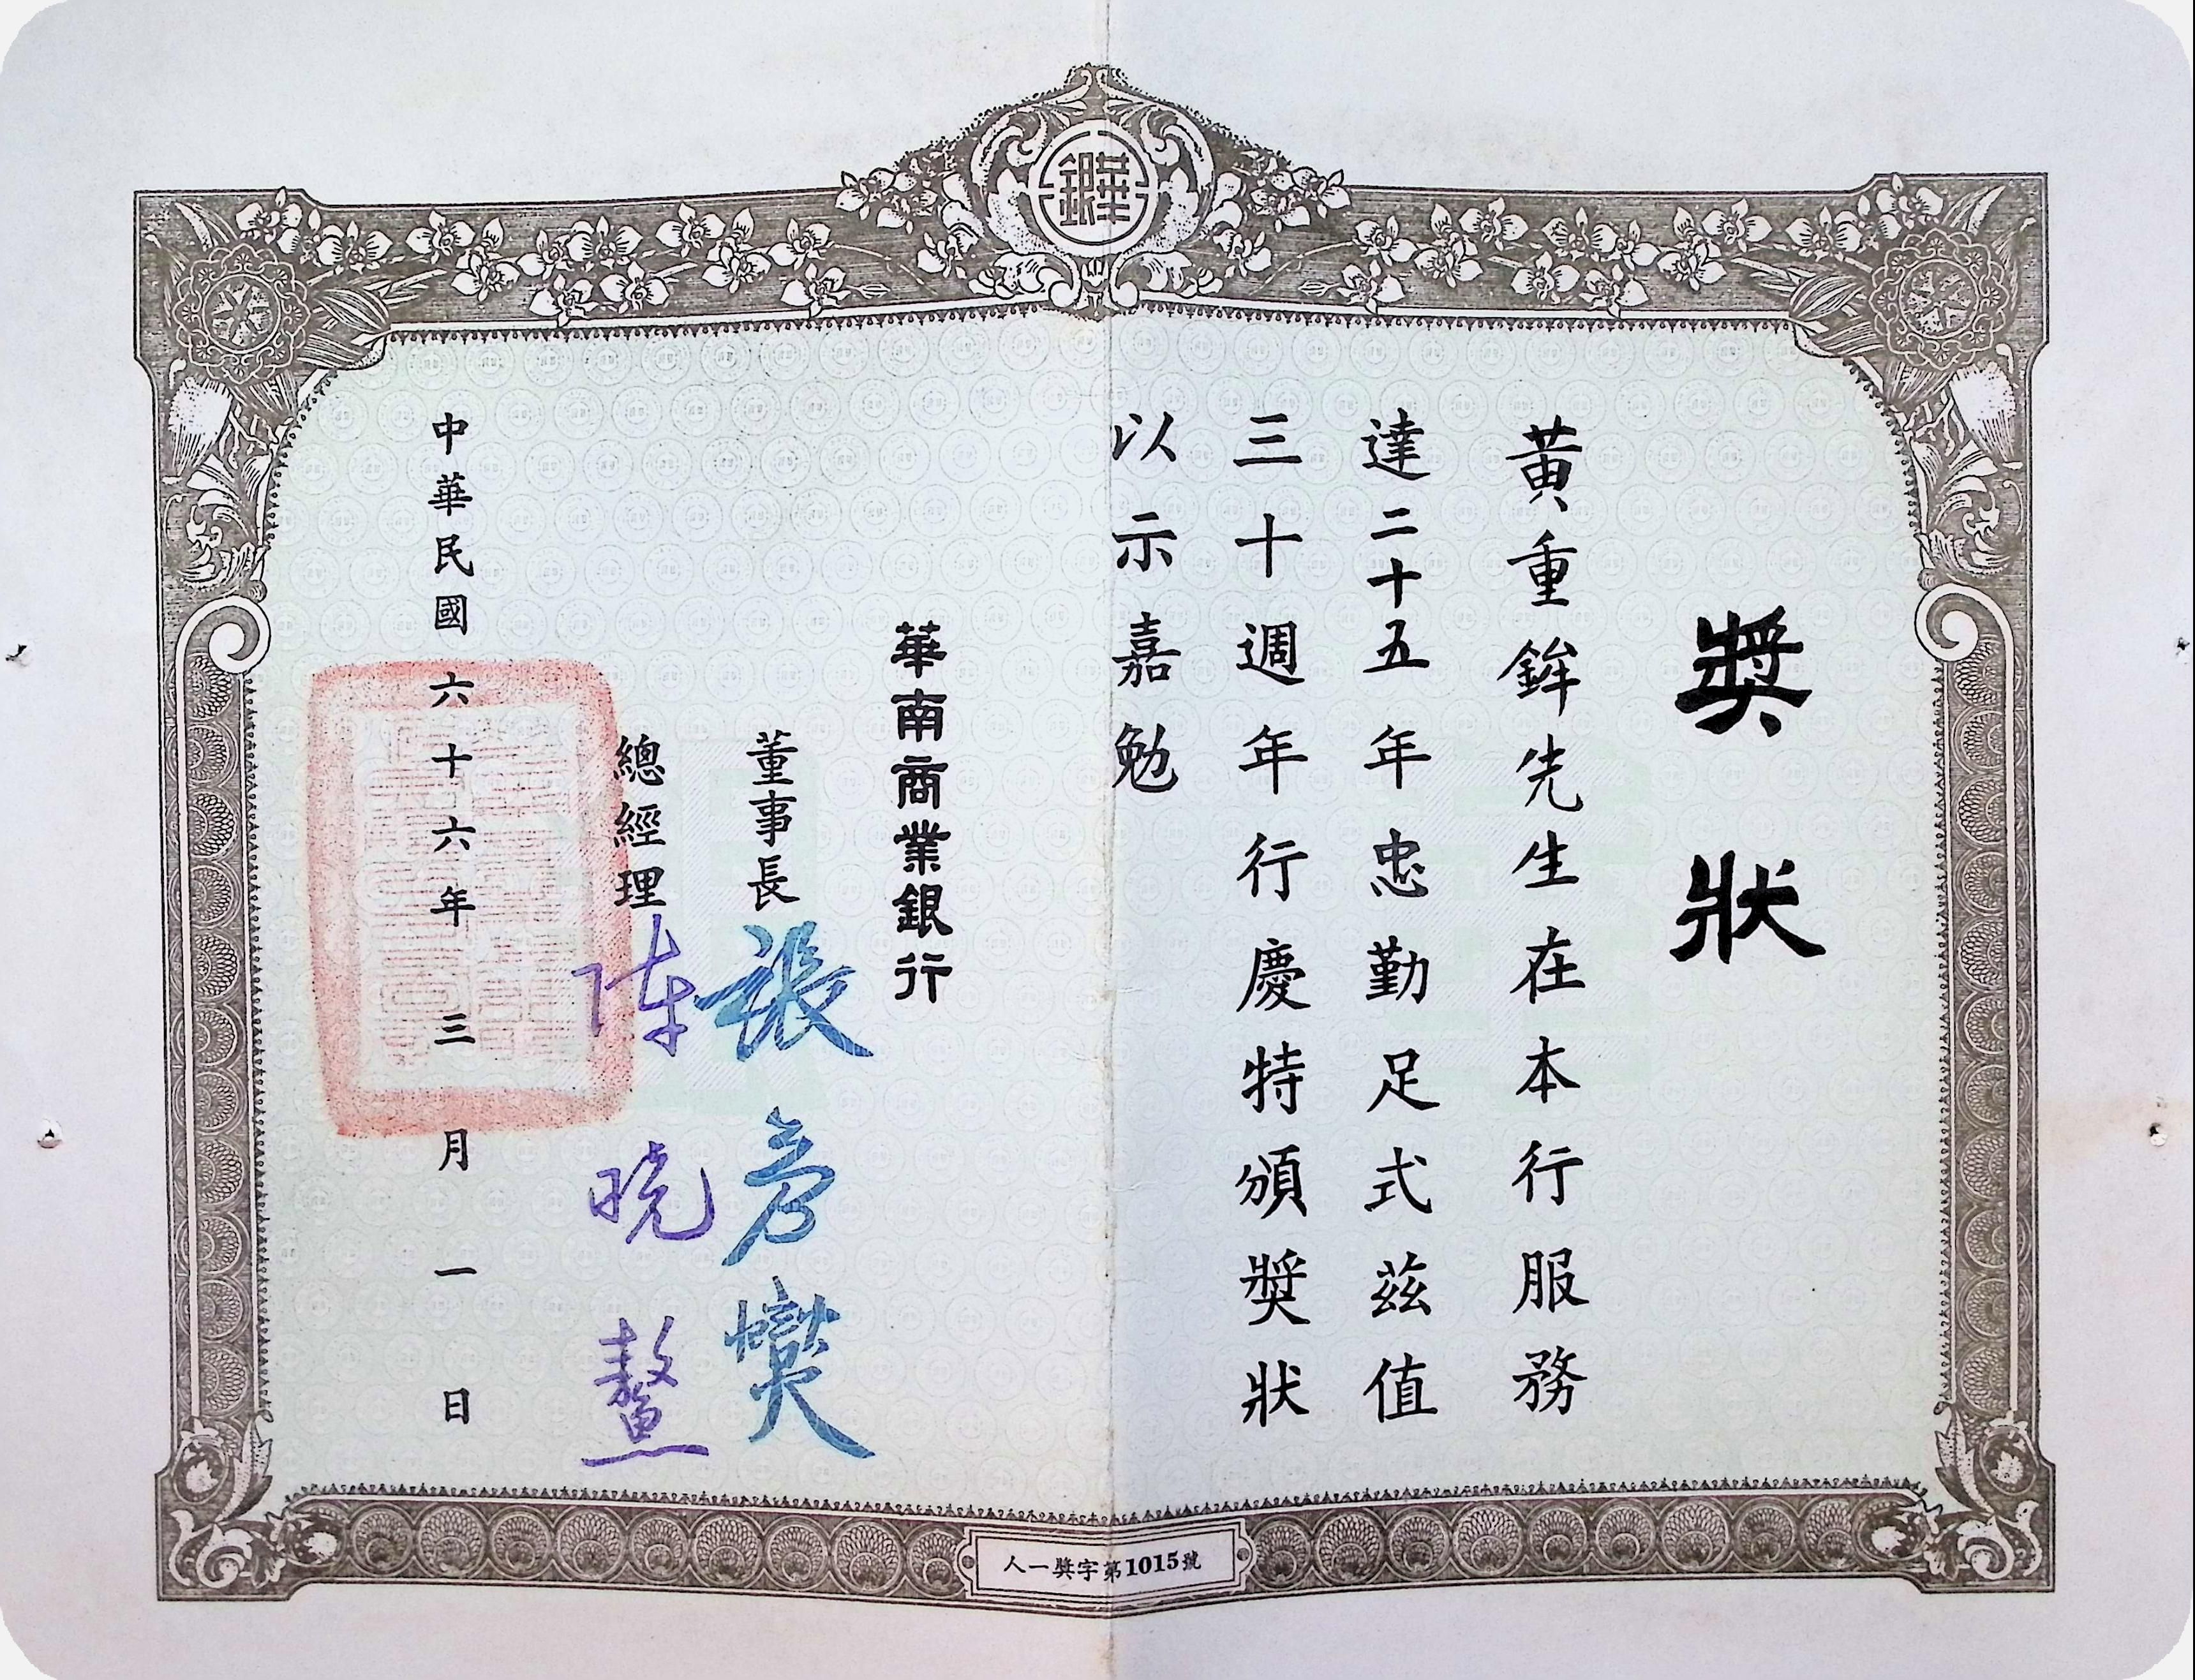 獎狀
黃重鉾先生在本行服務
達二十五年忠勤足式茲值
三十週年行慶特頒獎狀
以示嘉勉
華南商業銀行
董事長 張彥爕
總經理 陳曉鰲
中華民國六十六年三月一日
人一獎字第1015號
華銀